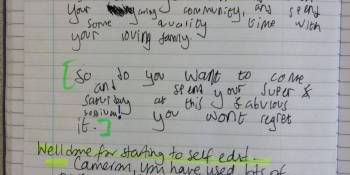 your caring community, and spend
some quality time with
your loving family.
[So do you want to come
and spend your super &
saturday at this fabulous
you wont regret
it.]
Well done for starting to self edit.
Cameron, you have used lots of